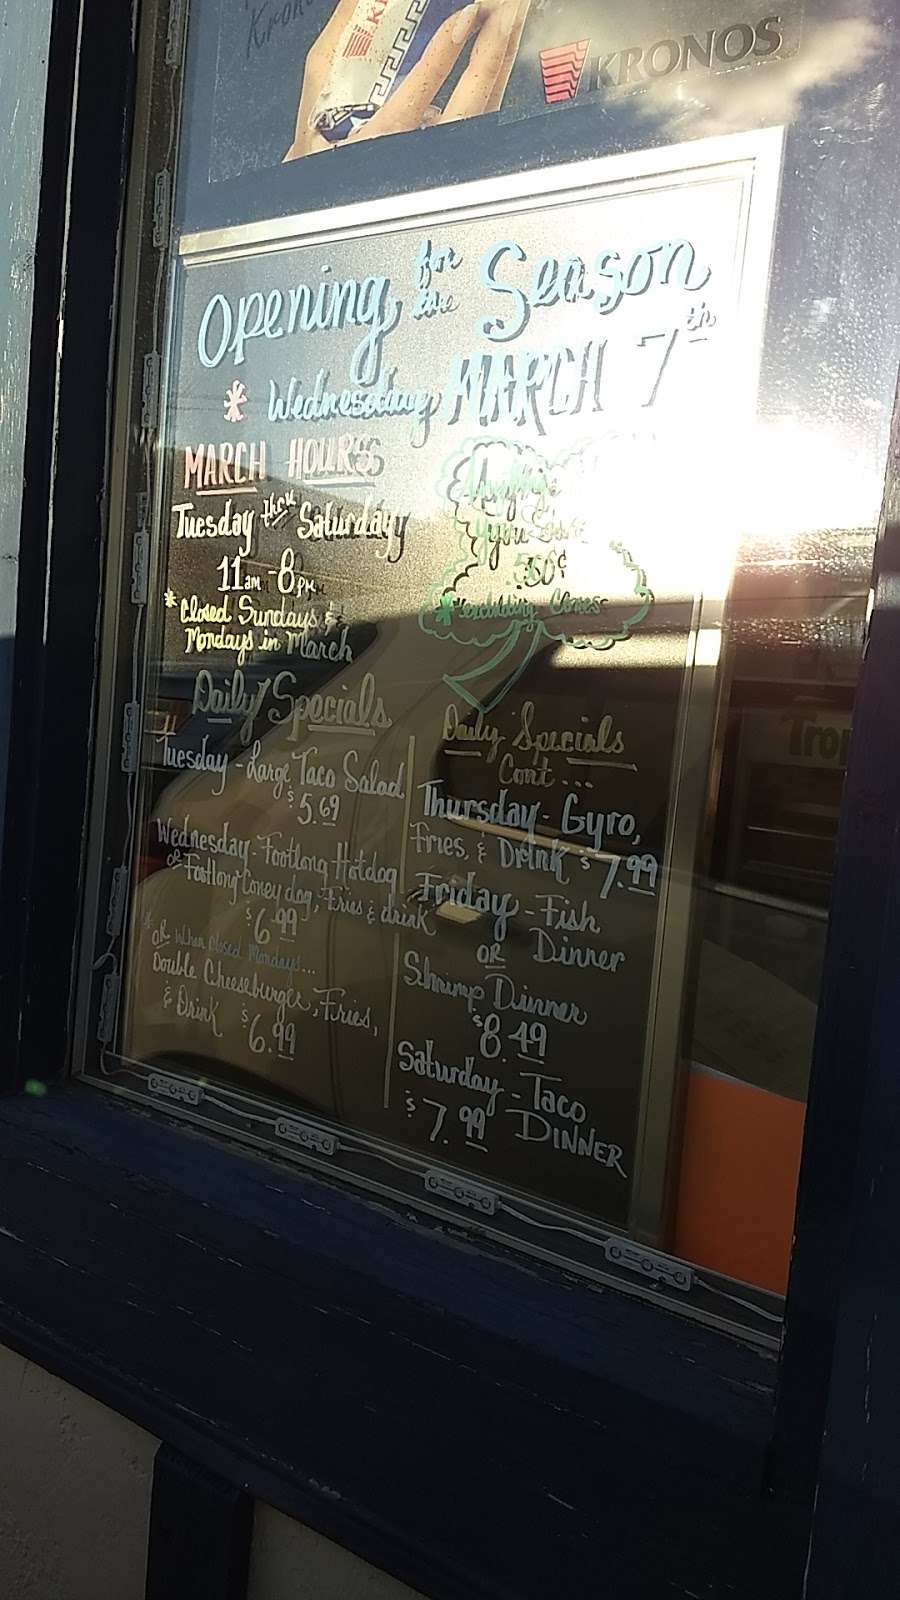 KRONOS
Opening for the Season
* Wednesday MARCH 7th
MARCH HOURS
Tuesday thru Saturday
11am - 8pm
* Closed Sundays &
Mondays in March
50¢
* excluding Cones
Daily Specials
Tuesday - Large Taco Salad
$5.69
Wednesday - Footlong Hotdog
or Footlong Coney dog, Fries & drink
$6.99
* OR When Closed Mondays...
Double Cheeseburger, Fries,
& Drink $6.99
Daily Specials
Cont...
Thursday - Gyro,
Fries, & Drink $7.99
Friday - Fish
OR Dinner
Shrimp Dinner
$8.49
Saturday - Taco
$7.99 DINNER